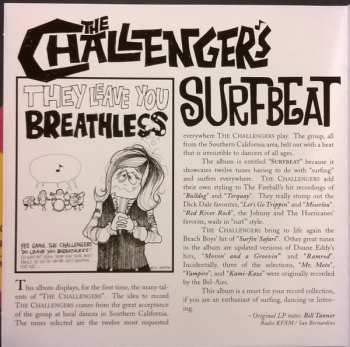 THE
CHALLENGER'S
SURFBEAT
THEY LEAVE YOU
BREATHLESS
YES GANG, THE CHALLENGERS
DO LEAVE YOU BREATHLESS!
This album displays, for the first time, the many tal-
ents of "THE CHALLENGERS". The idea to record
THE CHALLENGERS comes from the great acceptance
of the group at local dances in Southern California.
The tunes selected are the twelve most requested
everywhere THE CHALLENGERS play. The group, all
from the Southern California area, belt out with a beat
that is irresistible to dancers of all ages.
The album is entitled "SURFBEAT" because it
showcases twelve tunes having to do with "surfing"
and surfers everywhere. THE CHALLENGERS add
their own styling to The Fireball's hit recordings of
"Bulldog" and "Torquay". They really stomp out the
Dick Dale favorites, "Let's Go Trippin" and "Miserlou".
"Red River Rock", the Johnny and The Hurricanes'
favorite, wails in "surf" style.
THE CHALLENGERS bring to life again the
Beach Boys' hit of "Surfin' Safari". Other great tunes
on the album are updated versions of Duane Eddy's
hits, "Movin' and a Groovin" and "Ramrod".
Incidentally, three of the selections, "Mr. Moto",
"Vampire", and "Kami-Kaze" were originally recorded
by the Bel-Airs.
This album is a must for your record collection,
if you are an enthusiast of surfing, dancing or listen-
ing.
- Original LP notes: Bill Tanner
Radio KFXM / San Bernardino